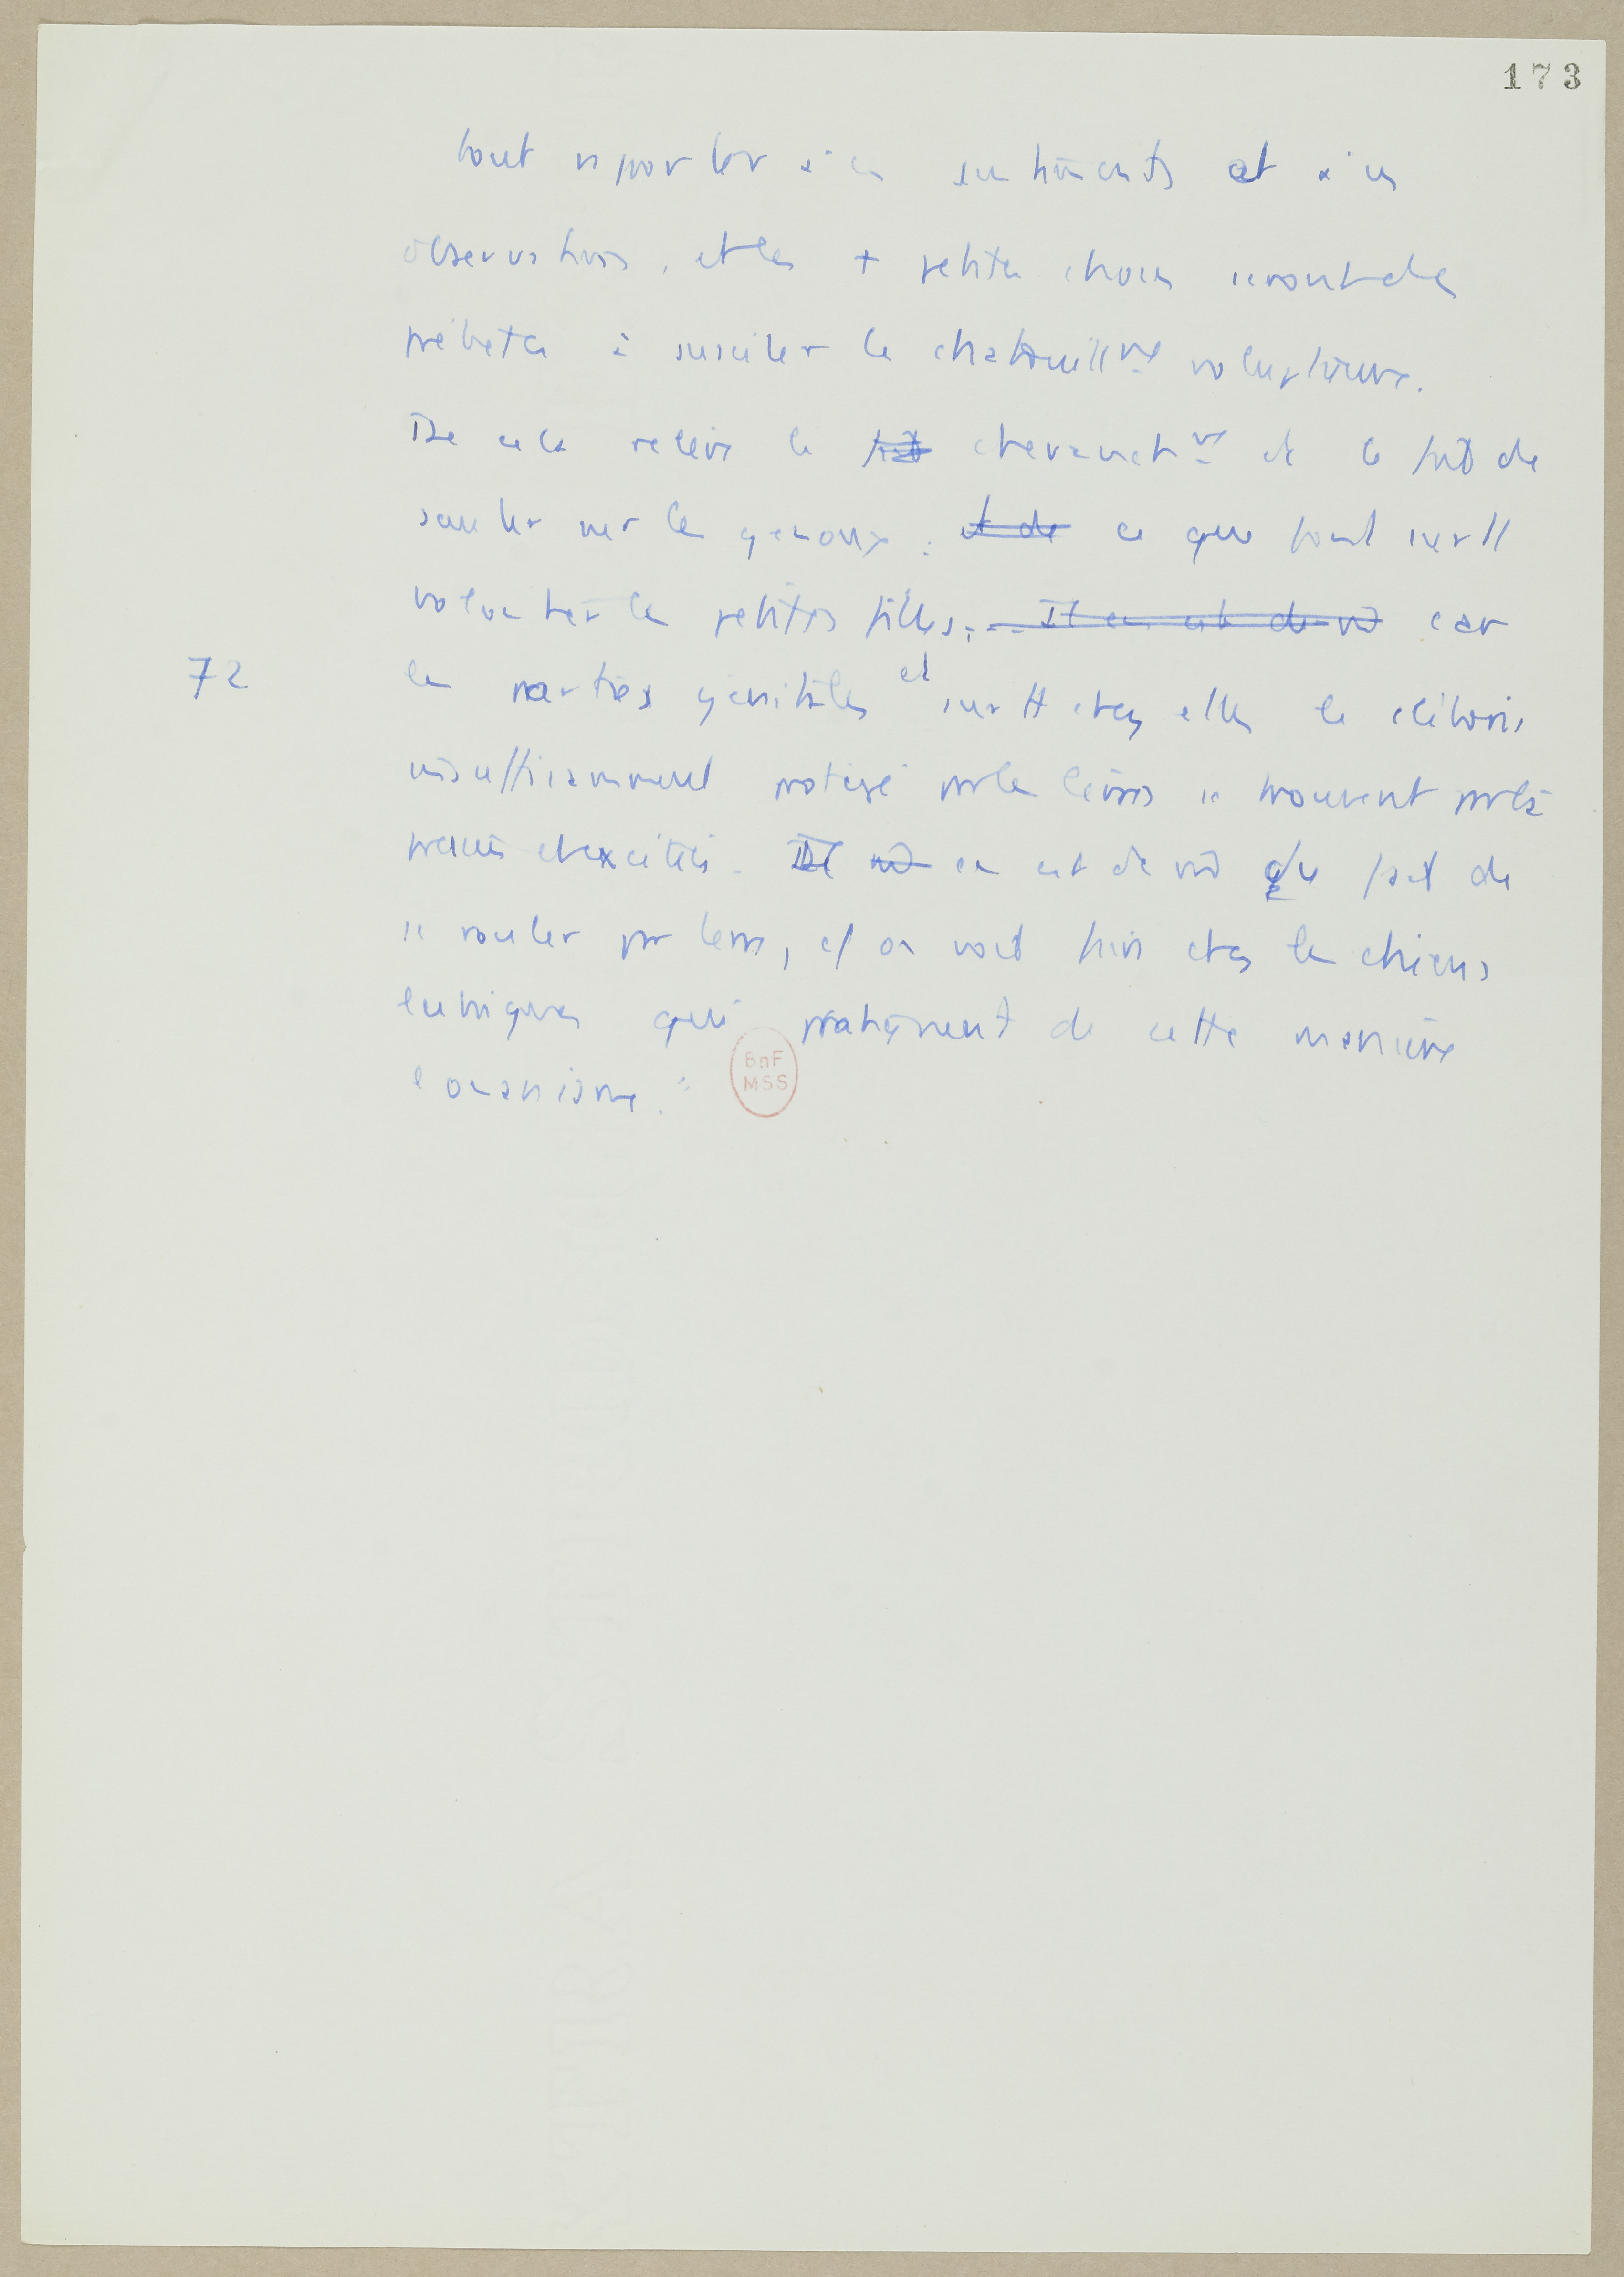 173
tout rapporter à ces sentiments et à ces
observations, et les + petites choses seront des
prétextes à susciter le chatouillmt voluptueux.
De cela relève le fait chevauchmt et le fait de
sauter sur les genoux : et de ce que font surtt
volontiers les petites filles ; .. Il en est de m̂ car
72
les parties génitales et surtt chez elles le clitoris
insuffisamment protégé par les lèvres se trouvent par là
pressés et excités. Il m̂ en est de m̂ du fait de
se rouler par terre, cf on voit chez les chiens
lubriques qui pratiquent de cette manière
l'onanisme."
BnF
MSS